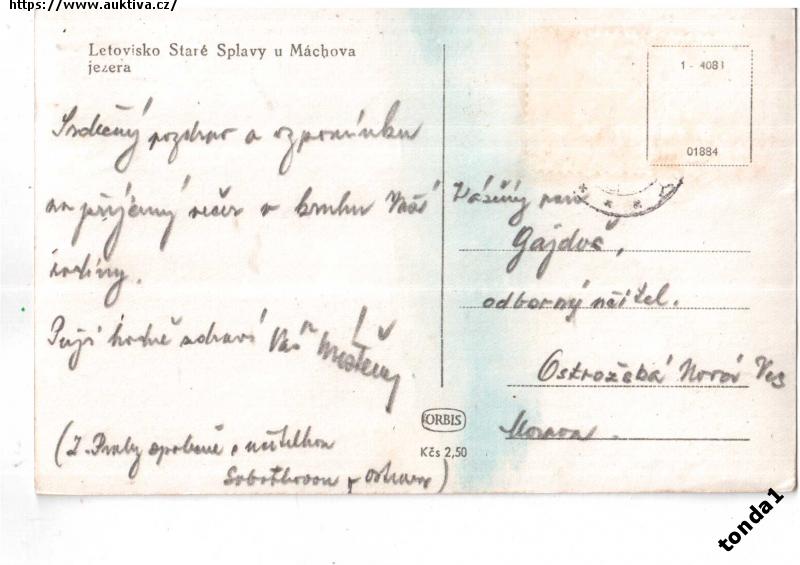 https://www.auktiva.cz/
Letovisko Staré Splavy u Máchova
jezera
1 - 4081
01884
Srdečný pozdrav a vzpomínku
na příjemný večer v kruhu Vaší
rodiny.
Přeji hodně zdraví Váš
Vážený pan
Gajdoš,
odborný učitel.
Ostrožská Nová Ves
Morava.
ORBIS
Kčs 2,50
(Z Prahy společně s učitelkou
Sobotkovou z Ostravy)
tonda1